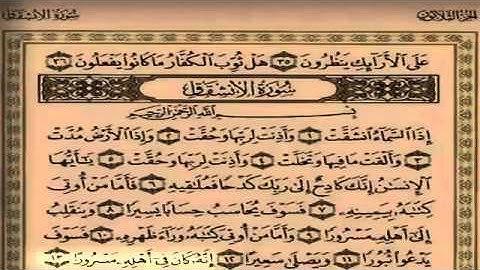 سورة الانشقاق الجزء الثلاثون
على الأرآئك ينظرون ٣٥ هل ثوب الكفار ما كانوا يفعلون ٣٦
سورة الانشقاق
بسم الله الرحمن الرحيم
إذا السمآء انشقت ١ وأذنت لربها وحقت ٢ وإذا الأرض مدت
٣ وألقت ما فيها وتخلت ٤ وأذنت لربها وحقت ٥ يأيها
الإنسن إنك كادح إلى ربك كدحا فملقيه ٦ فأما من أوتى
كتبه بيمينه ٧ فسوف يحاسب حسابا يسيرا ٨ وينقلب
إلى أهله مسرورا ٩ وأما من أوتى كتبه ورآء ظهره ١٠ فسوف
يدعوا ثبورا ١١ ويصلى سعيرا ١٢ إنه كان فى أهله مسرورا ١٣